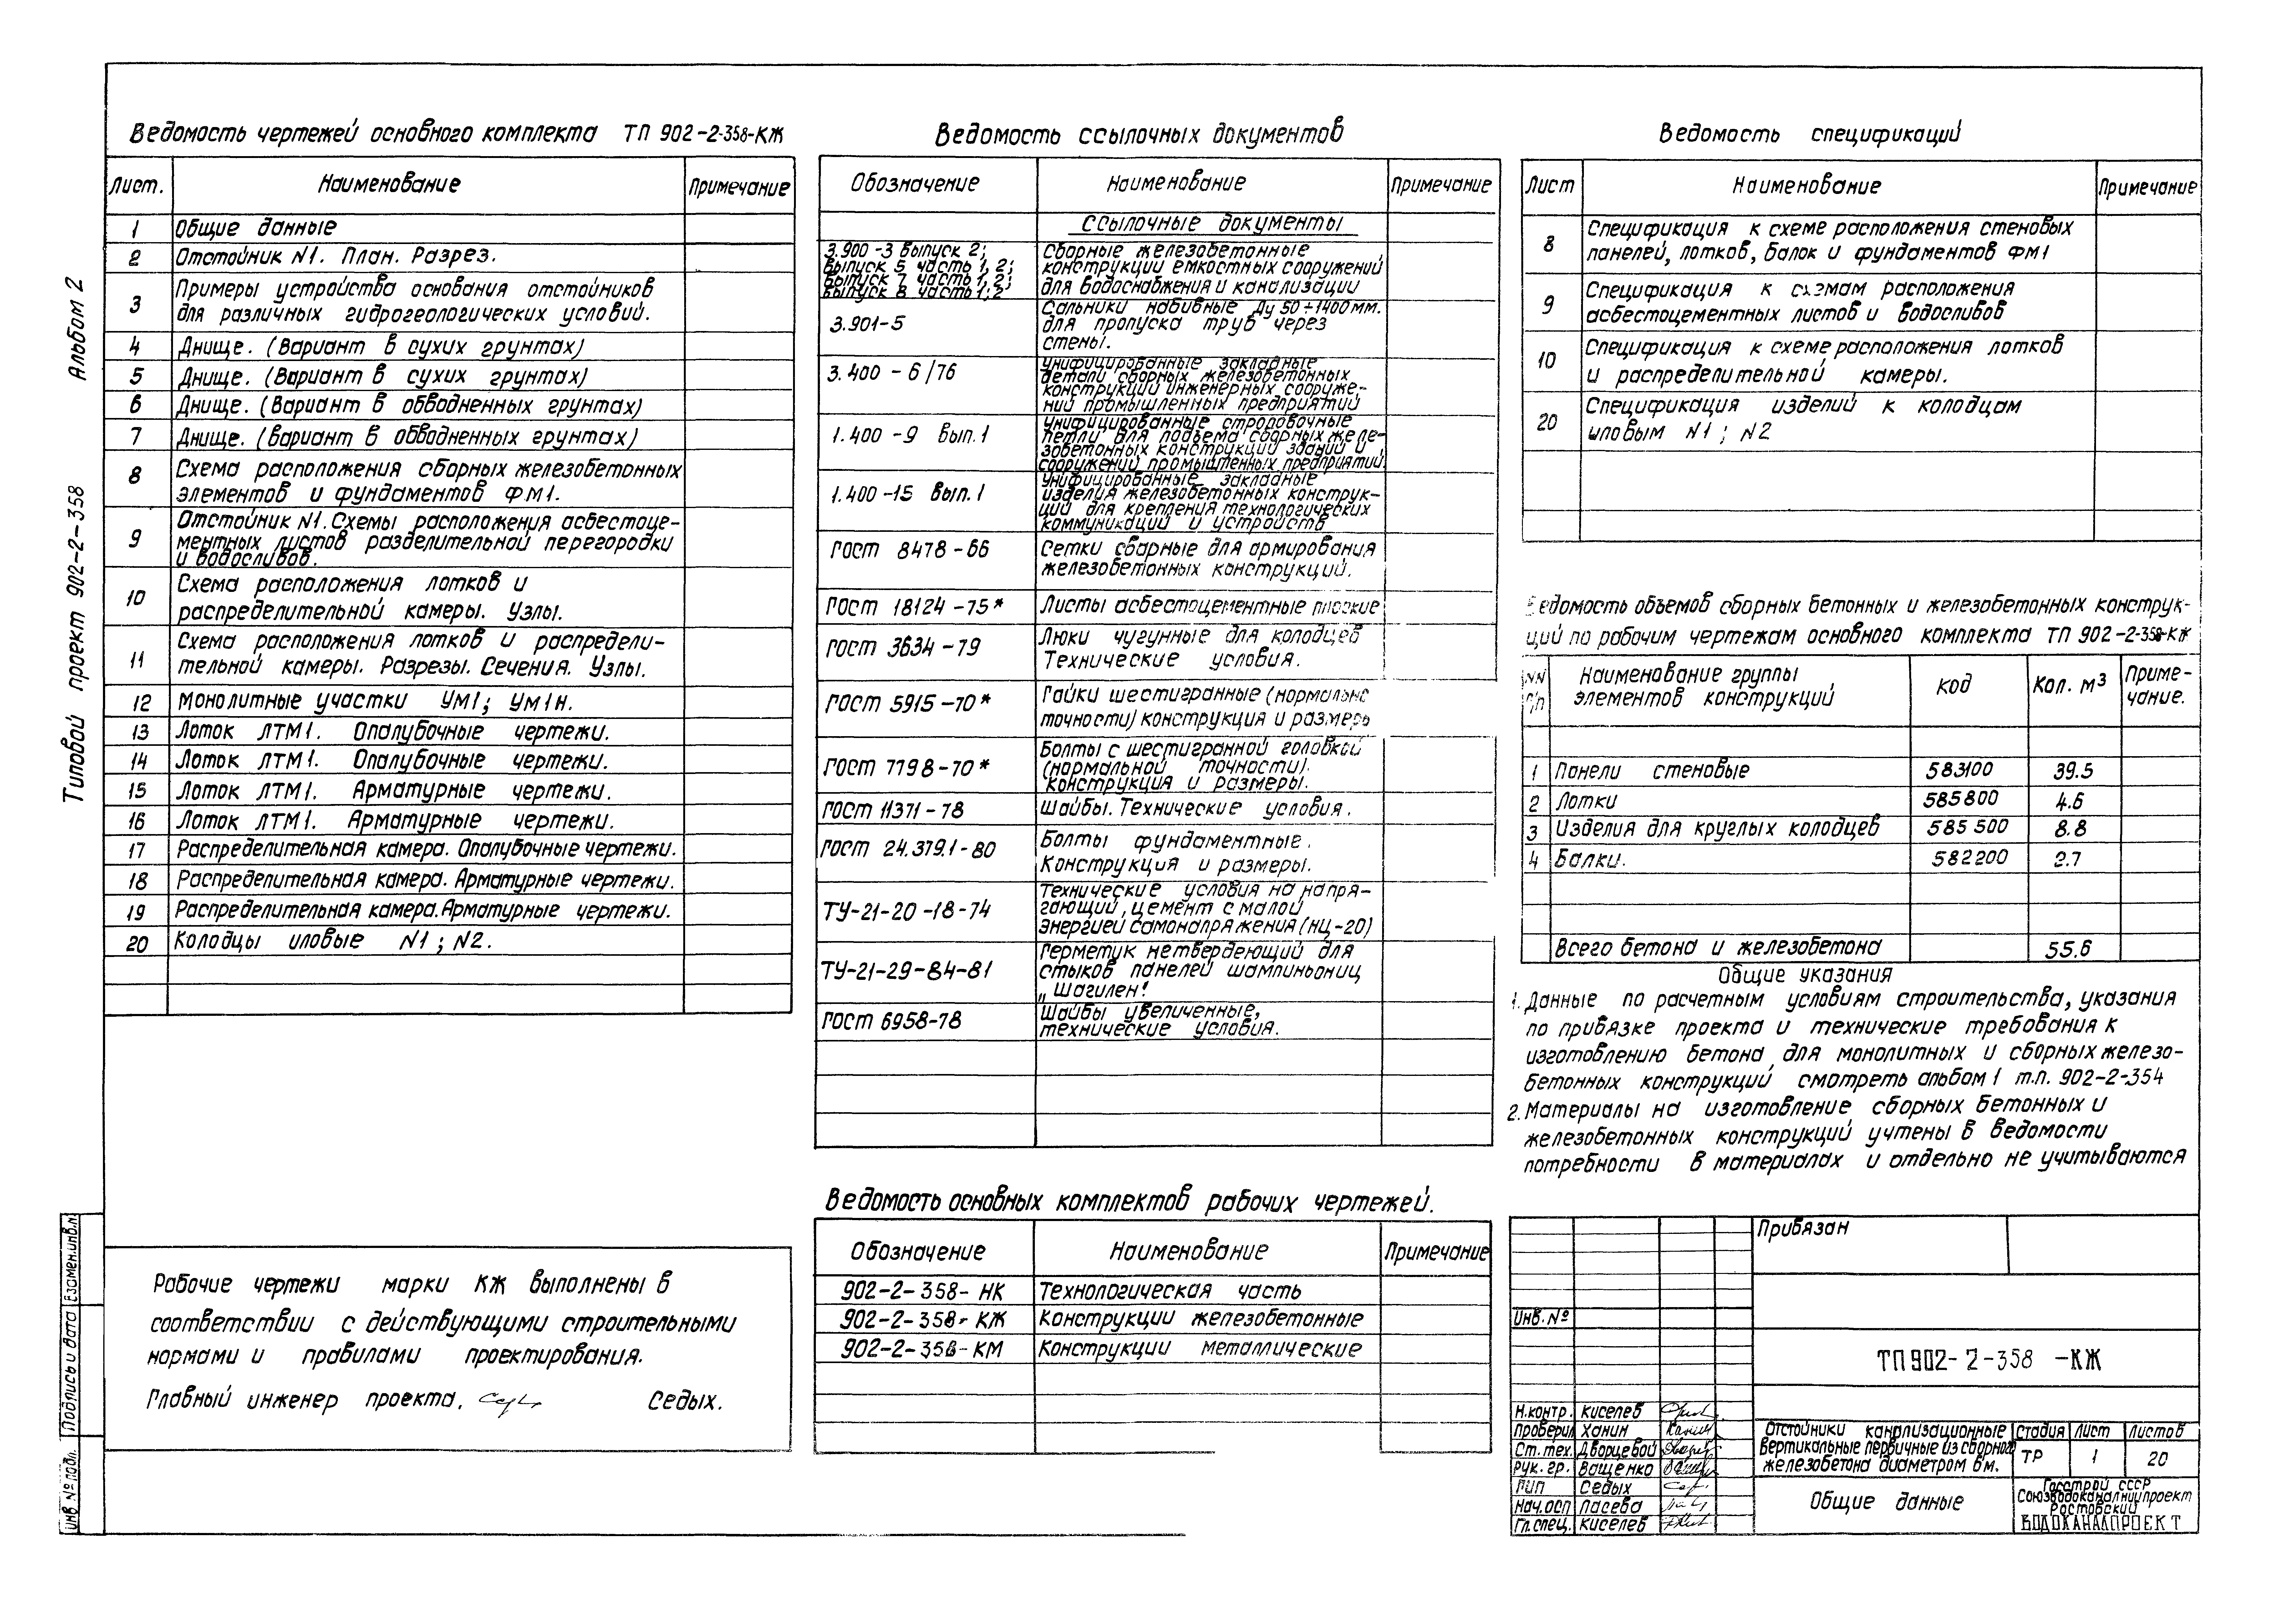 Альбом 2
Типовой проект 902-2-358
Ведомость чертежей основного комплекта ТП 902-2-358-КЖ
Лист. Наименование Примечание
1 Общие данные
2 Отстойник N1. План. Разрез.
3 Примеры устройства основания отстойников
для различных гидрогеологических условий.
4 Днище. (Вариант в сухих грунтах)
5 Днище. (Вариант в сухих грунтах)
6 Днище. (Вариант в обводненных грунтах)
7 Днище. (вариант в обводненных грунтах)
8 Схема расположения сборных железобетонных
элементов и фундаментов ФМ1.
9 Отстойник N1. Схемы расположения асбестоце-
ментных листов разделительной перегородки
и водосливов.
10 Схема расположения лотков и
распределительной камеры. Узлы.
11 Схема расположения лотков и распредели-
тельной камеры. Разрезы. Сечения. Узлы.
12 Монолитные участки УМ1; УМ1н.
13 Лоток ЛТМ1. Опалубочные чертежи.
14 Лоток ЛТМ1. Опалубочные чертежи.
15 Лоток ЛТМ1. Арматурные чертежи.
16 Лоток ЛТМ1. Арматурные чертежи.
17 Распределительная камера. Опалубочные чертежи.
18 Распределительная камера. Арматурные чертежи.
19 Распределительная камера. Арматурные чертежи.
20 Колодцы иловые N1; N2.
Рабочие чертежи марки КЖ выполнены в
соответствии с действующими строительными
нормами и правилами проектирования.
Главный инженер проекта. Седых.
Взамен.инв.N
Подпись и дата
Инв № подл.
Ведомость ссылочных документов
Обозначение Наименование Примечание
Ссылочные документы
3.900-3 выпуск 2; Сборные железобетонные
выпуск 5 часть 1, 2; конструкции емкостных сооружений
выпуск 7 часть 1,2; для водоснабжения и канализации
выпуск 8 часть 1;2
Сальники набивные Ду 50÷1400мм.
3.901-5 для пропуска труб через
стены.
Унифицированные закладные
3.400-6/76 детали сборных железобетонных
конструкций инженерных сооруже-
ний промышленных предприятий
Унифицированные строповочные
1.400-9 вып.1 петли для подъема сборных желе-
зобетонных конструкций зданий и
сооружений промышленных предприятий.
Унифицированные закладные
1.400-15 вып.1 изделия железобетонных конструк-
ций для крепления технологических
коммуникаций и устройств
ГОСТ 8478-66 Сетки сварные для армирования
железобетонных конструкций.
ГОСТ 18124-75* Листы асбестоцементные плоские
ГОСТ 3634-79 Люки чугунные для колодцев
Технические условия.
ГОСТ 5915-70* Гайки шестигранные (нормально
точности) конструкция и размеры
ГОСТ 7798-70* Болты с шестигранной головкой
(нормальной точности).
Конструкция и размеры.
ГОСТ 11371-78 Шайбы. Технические условия.
ГОСТ 24.379.1-80 Болты фундаментные.
Конструкция и размеры.
Технические условия на напря-
ТУ-21-20-18-74 гающий, цемент с малой
энергией самонапряжения (нц-20)
Герметик нетвердеющий для
ТУ-21-29-84-81 стыков панелей шампиньониц
„Шагилен!
ГОСТ 6958-78 Шайбы увеличенные,
технические условия.
Ведомость основных комплектов рабочих чертежей.
Обозначение Наименование Примечание
902-2-358-НК Технологическая часть
902-2-358-КЖ Конструкции железобетонные
902-2-358-КМ Конструкции металлические
Ведомость спецификаций
Лист Наименование Примечание
8 Спецификация к схеме расположения стеновых
панелей, лотков, балок и фундаментов ФМ1
9 Спецификация к схемам расположения
асбестоцементных листов и водосливов
10 Спецификация к схеме расположения лотков
и распределительной камеры.
20 Спецификация изделий к колодцам
иловым N1; N2
Ведомость объемов сборных бетонных и железобетонных конструк-
ций по рабочим чертежам основного комплекта ТП 902-2-358-КЖ
NN п/п Наименование группы элементов конструкций код Кол. м3 Приме-
чание.
1 Панели стеновые 583100 39.5
2 Лотки 585800 4.6
3 Изделия для круглых колодцев 585500 8.8
4 Балки. 582200 2.7
Всего бетона и железобетона 55.6
Общие указания
1. Данные по расчетным условиям строительства, указания
по привязке проекта и технические требования к
изготовлению бетона для монолитных и сборных железо-
бетонных конструкций смотреть альбом 1 т.п. 902-2-354
2. Материалы на изготовление сборных бетонных и
железобетонных конструкций учтены в ведомости
потребности в материалах и отдельно не учитываются
Привязан
Инв. №
ТП902-2-358 -КЖ
Н.контр. Киселев
Проверил Ханин
Ст. тех. Дворцевой
Рук. гр. Ващенко
ГИП Седых
Нач.осп Ласева
Гл.спец. Киселев
Отстойники канализационные
вертикальные первичные из сборного
железобетона диаметром 6м.
Стадия Лист Листов
ТР 1 20
Общие данные
Госстрой СССР
Союзводоканалниипроект
Ростовский
ВОДОКАНАЛПРОЕКТ